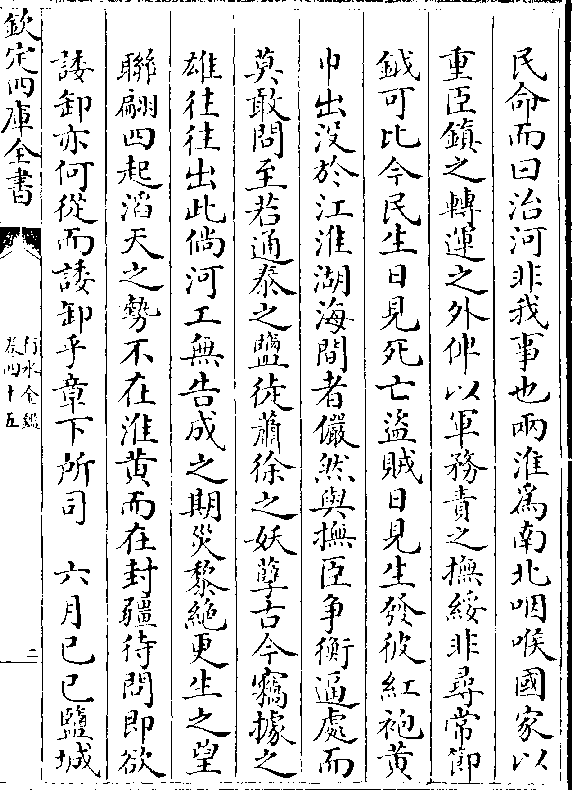 民命而曰治河非我事也兩淮為南北咽喉國家以
重臣鎮之轉運之外俾以軍務責之撫綏非尋常節
鉞可比今民生日見死亡盜賊日見生發彼紅袍黄
巾出没於江淮湖海間者儼然與撫臣爭衡逼處而
莫敢問至若通泰之鹽徒蕭徐之妖孽古今竊據之
雄往往出此倘河工無告成之期災黎絶更生之望
聯翩四起滔天之勢不在淮黄而在封疆待問即欲
諉卸亦何從而諉卸乎章下所司　六月己巳鹽城
欽定四庫全書
行水金鑑
卷四十五
二